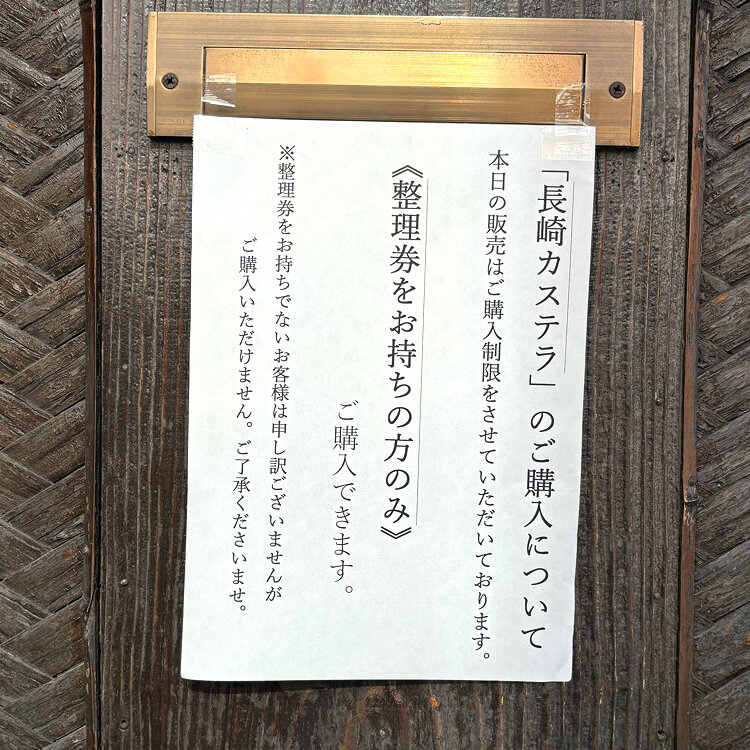 「長崎カステラ」のご購入について
本日の販売はご購入制限をさせていただいております。
《整理券をお持ちの方のみ》
ご購入できます。
※整理券をお持ちでないお客様は申し訳ございませんが
ご購入いただけません。ご了承くださいませ。